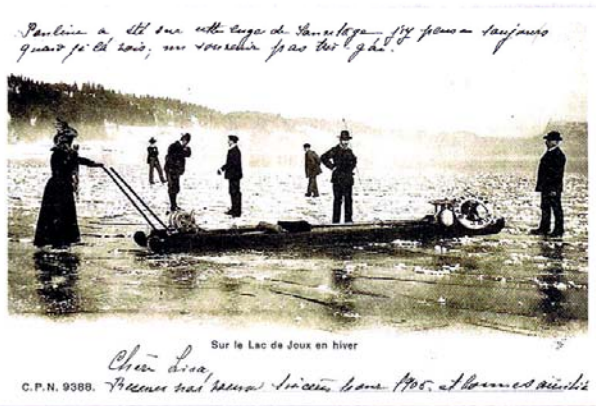 Pauline a été sur cette luge de sauvetage j'y pense toujours
quand je la vois, un souvenir pas très gai.
Sur le Lac de Joux en hiver
Chère Lisa,
C.P.N. 9388. Recevez nos voeux sincères 1905. et bonnes amitiés